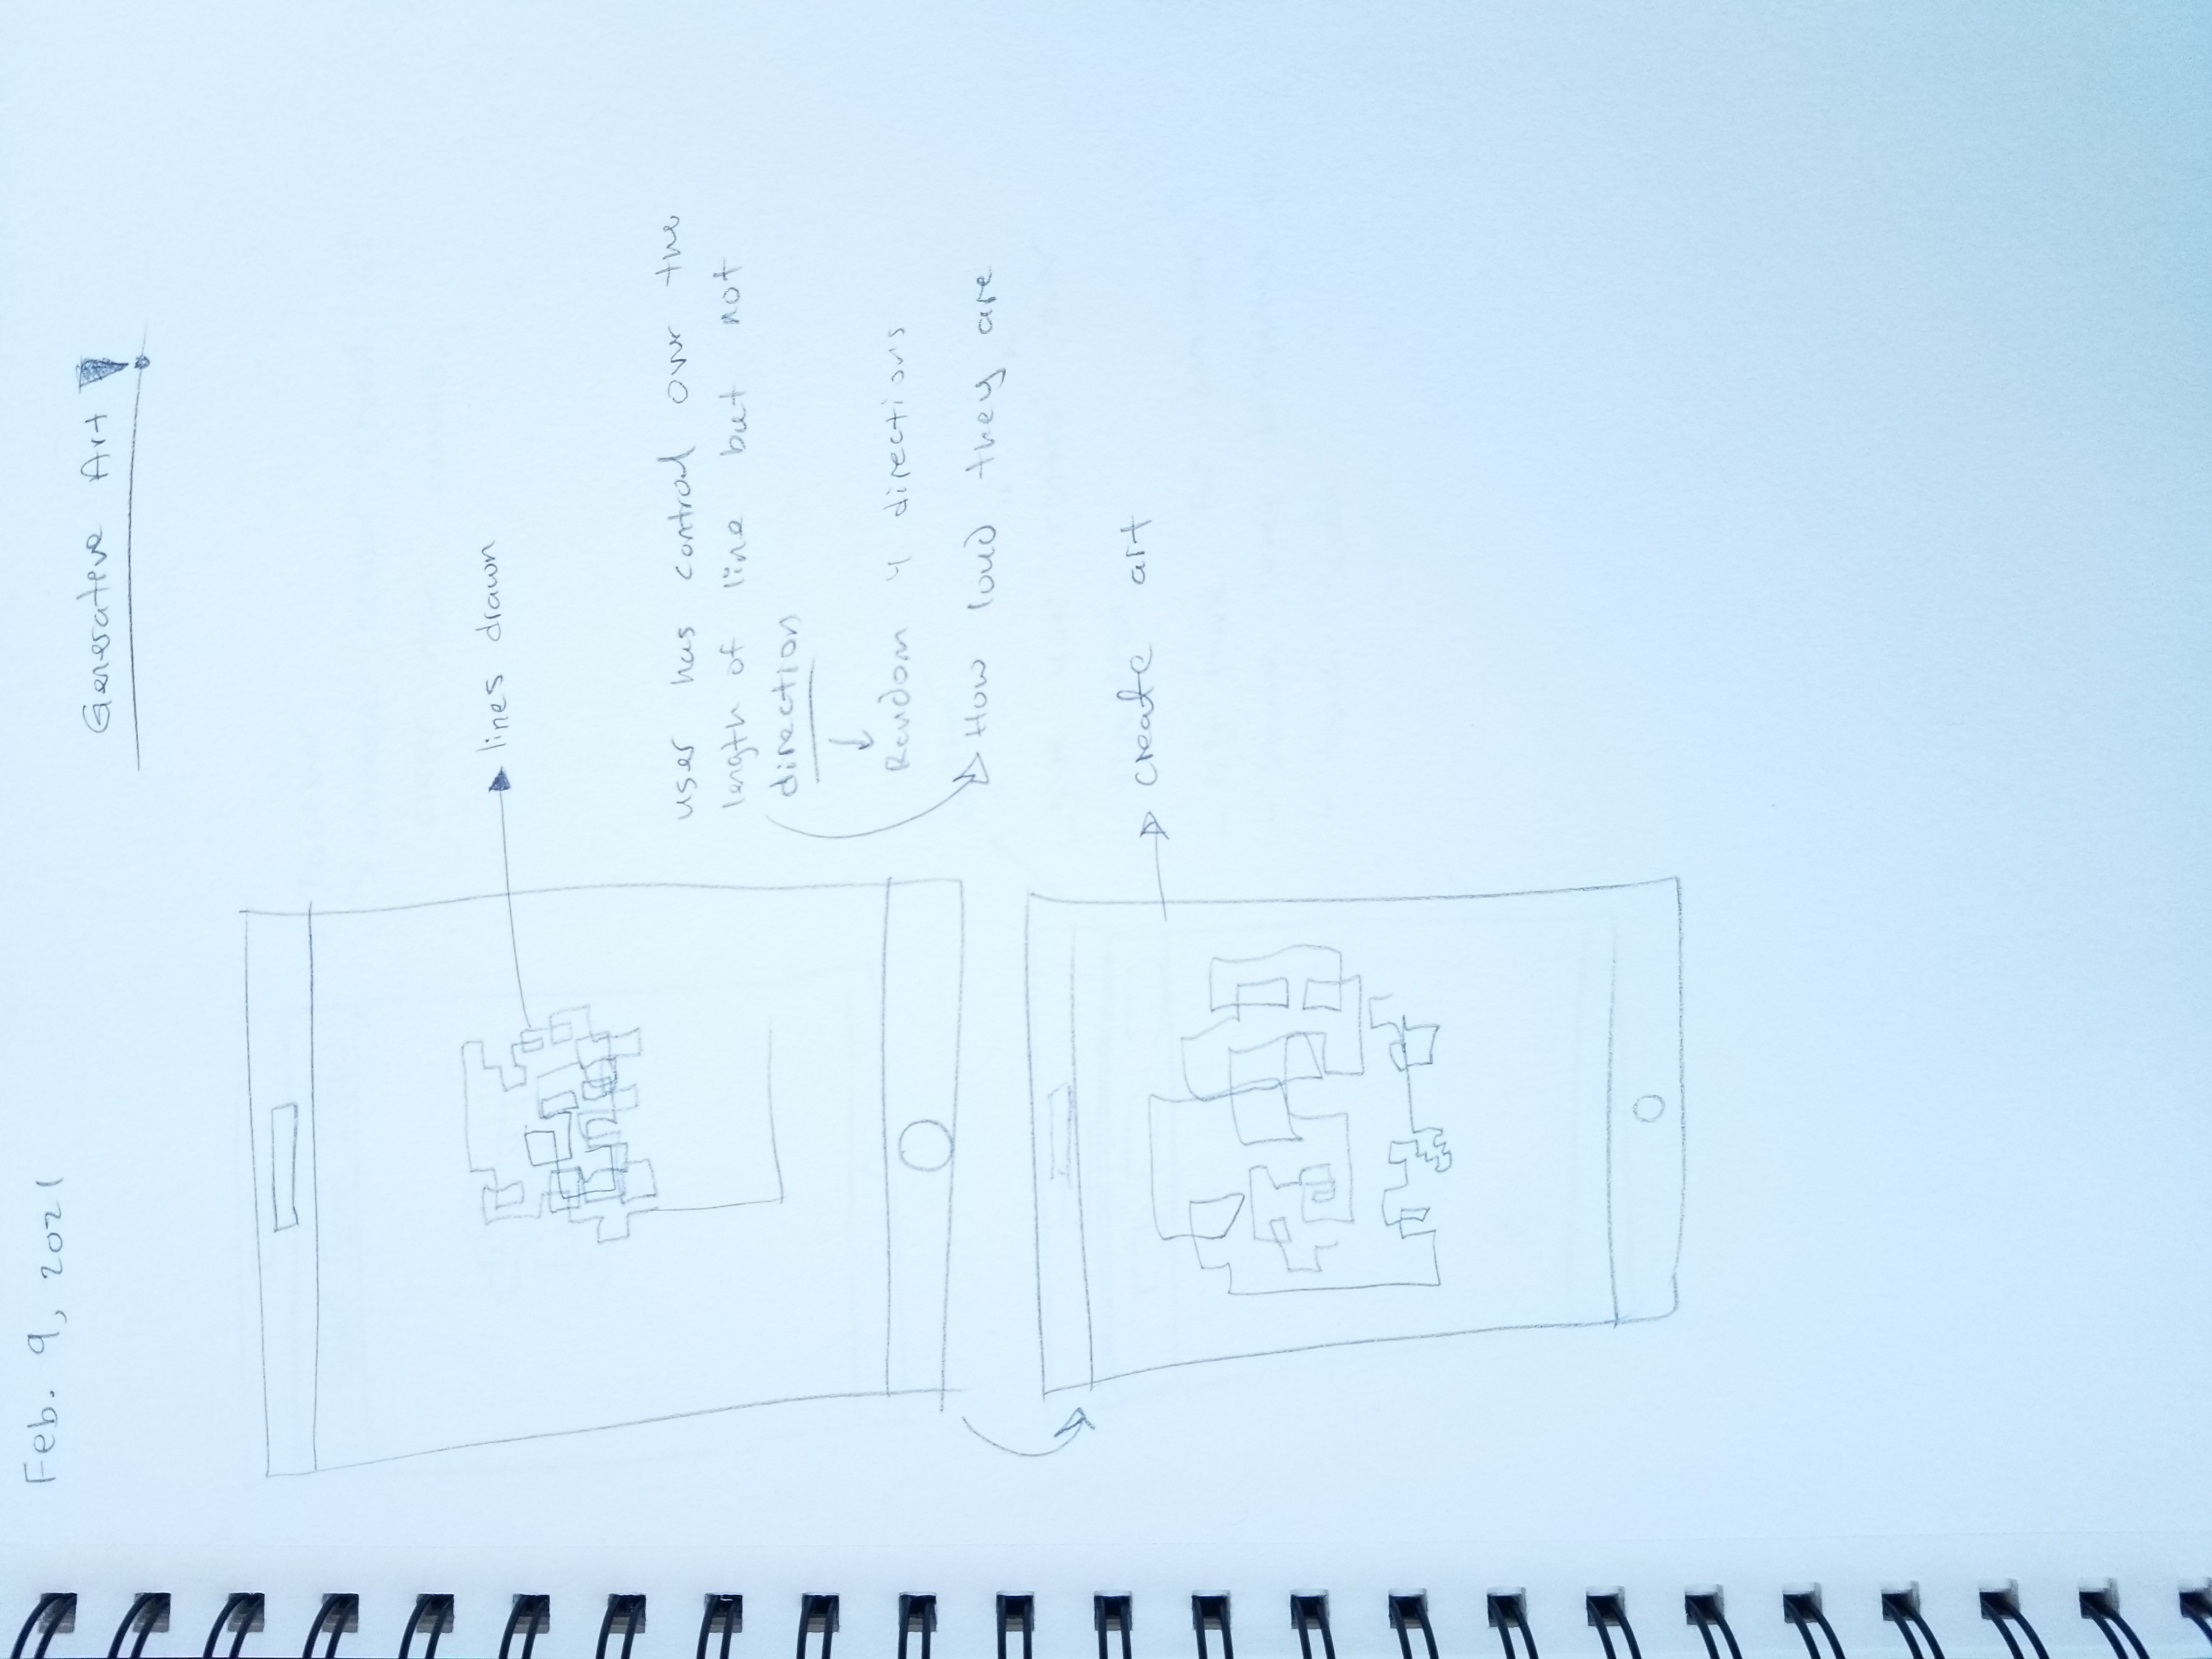 Feb. 9, 2021
Generative Art!
lines drawn
user has control over the
length of line but not
direction
Random 4 directions
How loud they are
create art